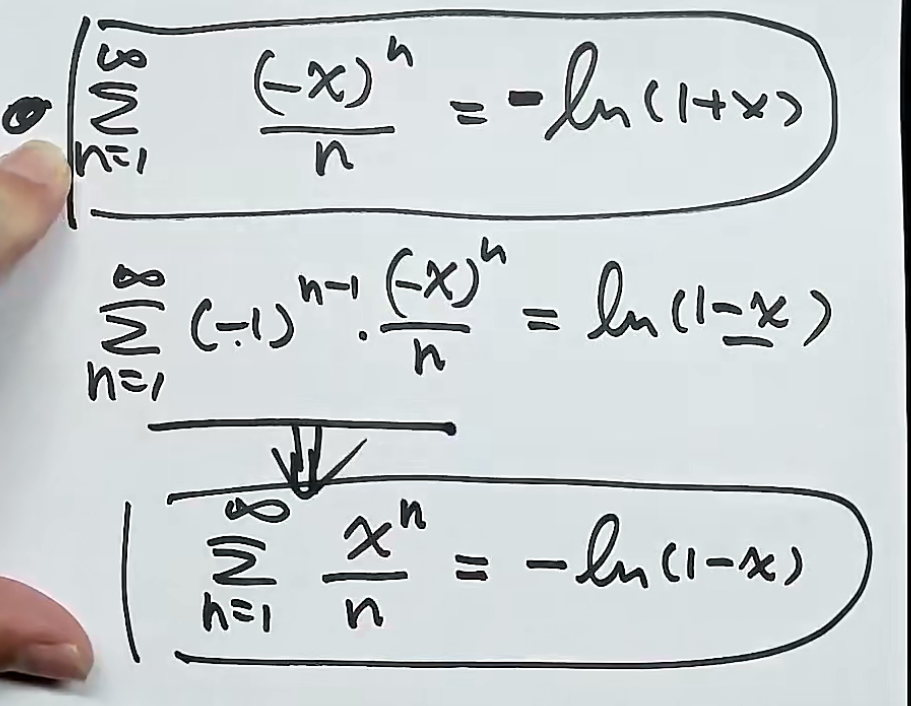 ∑_{n=1}^{∞} (-x)^n / n = -ln(1+x)
∑_{n=1}^{∞} (-1)^{n-1} · (-x)^n / n = ln(1-x)
∑_{n=1}^{∞} x^n / n = -ln(1-x)